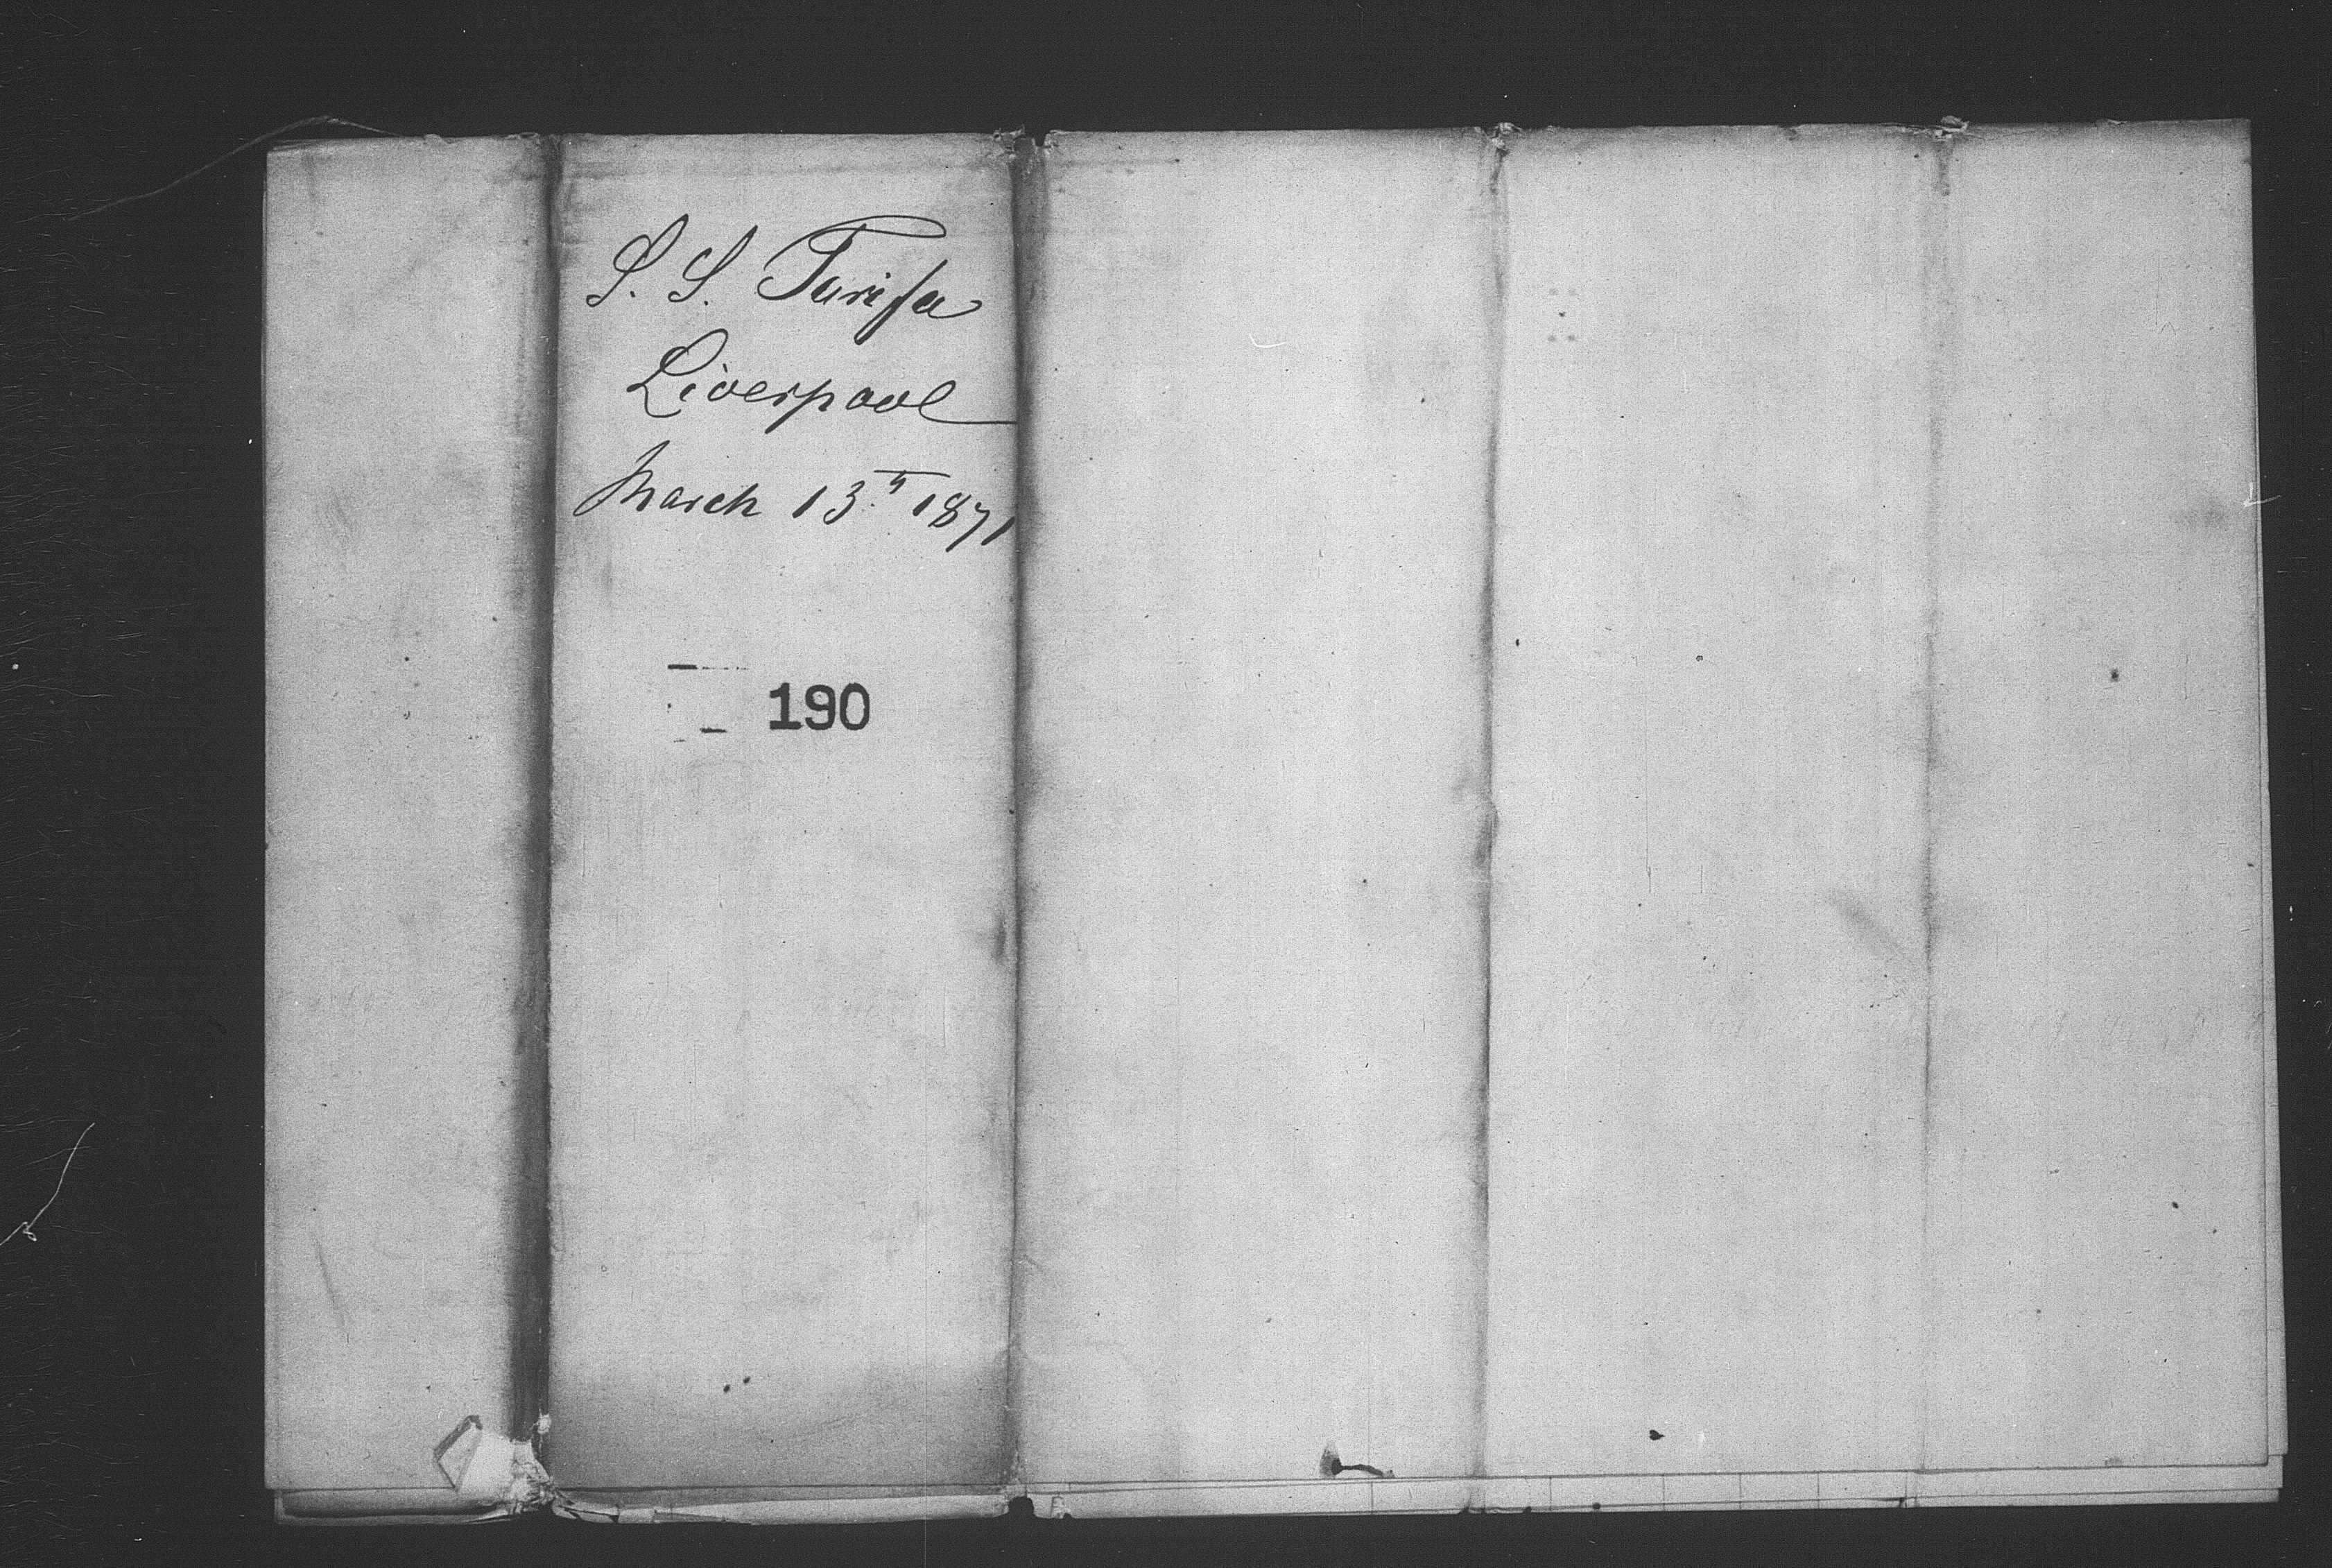 S. S. Tarifa
Liverpool
March 13.th 1871
190